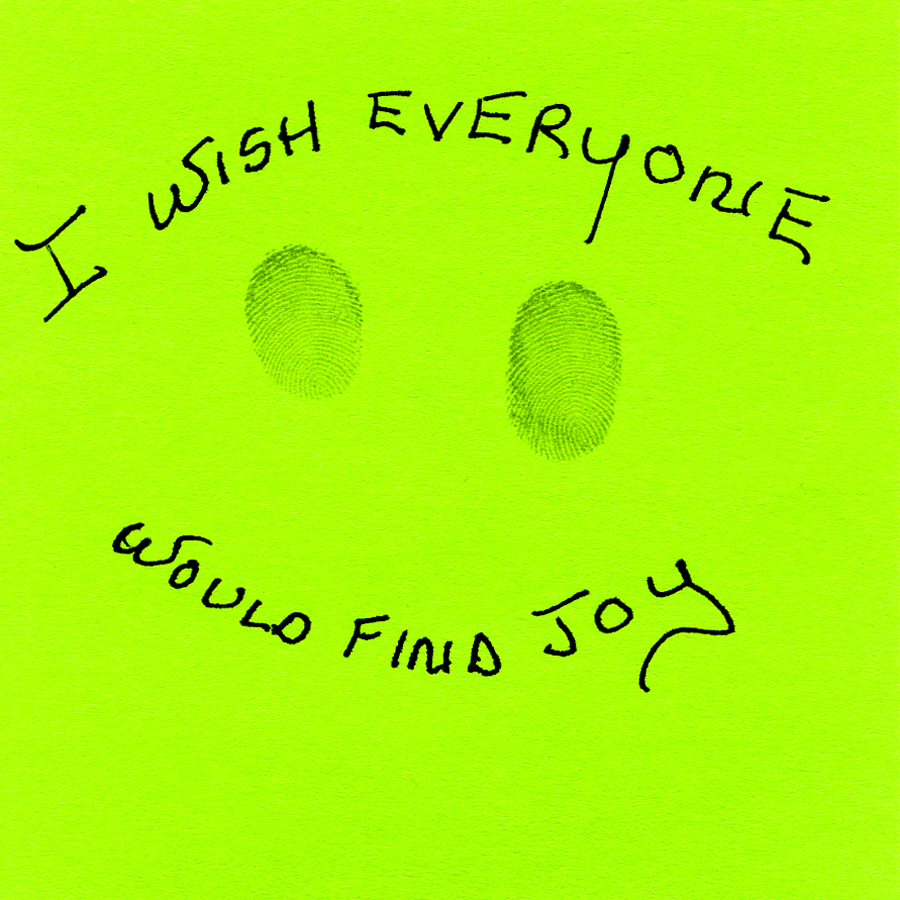 I WISH EVERYONE
WOULD FIND JOY